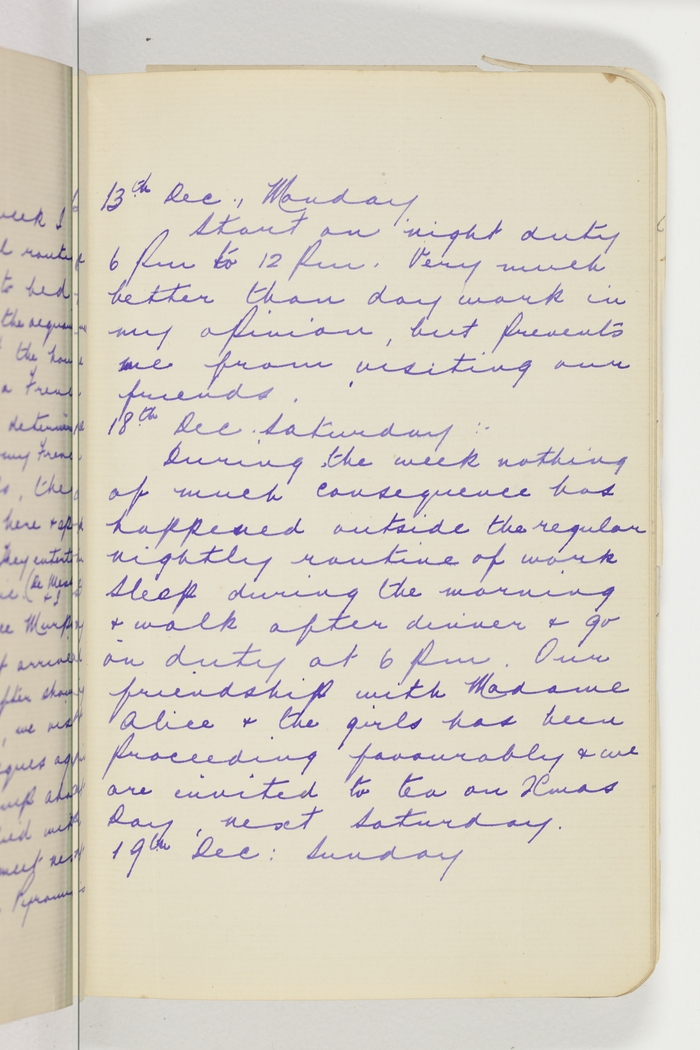 13th Dec., Monday
Start on night duty
6 pm to 12 pm. Very much
better than day work in
my opinion, but prevents
me from visiting our
friends.
18th Dec. Saturday :-
During the week nothing
of much consequence has
happened outside the regular
nightly routine of work
sleep during the morning
& walk after dinner & go
on duty at 6 pm. Our
friendship with Madame
Alice & the girls has been
proceeding favourably & we
are invited to tea on Xmas
Day, next Saturday.
19th Dec: Sunday